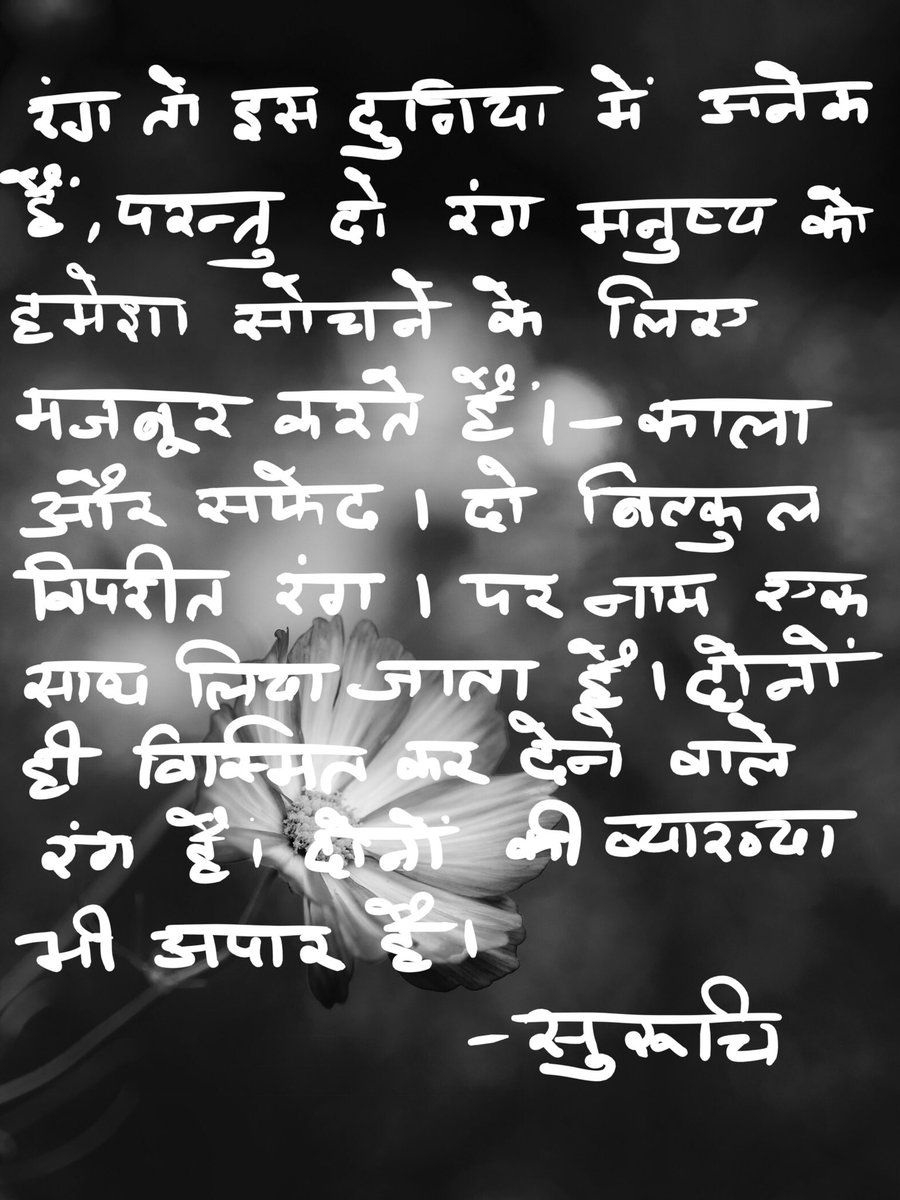 रंग तो इस दुनिया में अनेक
हैं, परन्तु दो रंग मनुष्य को
हमेशा सोचने के लिए
मजबूर करते हैं।- काला
और सफेद। दो बिल्कुल
विपरीत रंग। पर नाम एक
साथ लिया जाता है। दोनों
ही विस्मित कर देने वाले
रंग हैं। दोनों की व्याख्या
भी अपार है।
- सुरूचि